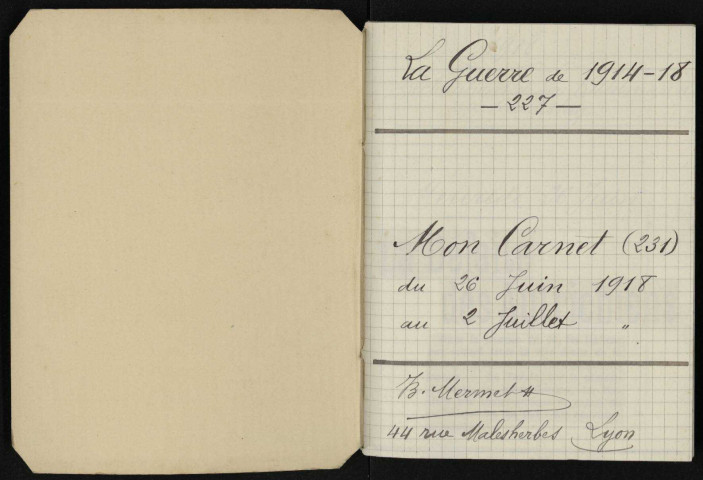 La Guerre de 1914-18
— 227 —
Mon Carnet (231)
du 26 Juin 1918
au 2 Juillet "
B. Mermet
44 rue Malesherbes Lyon